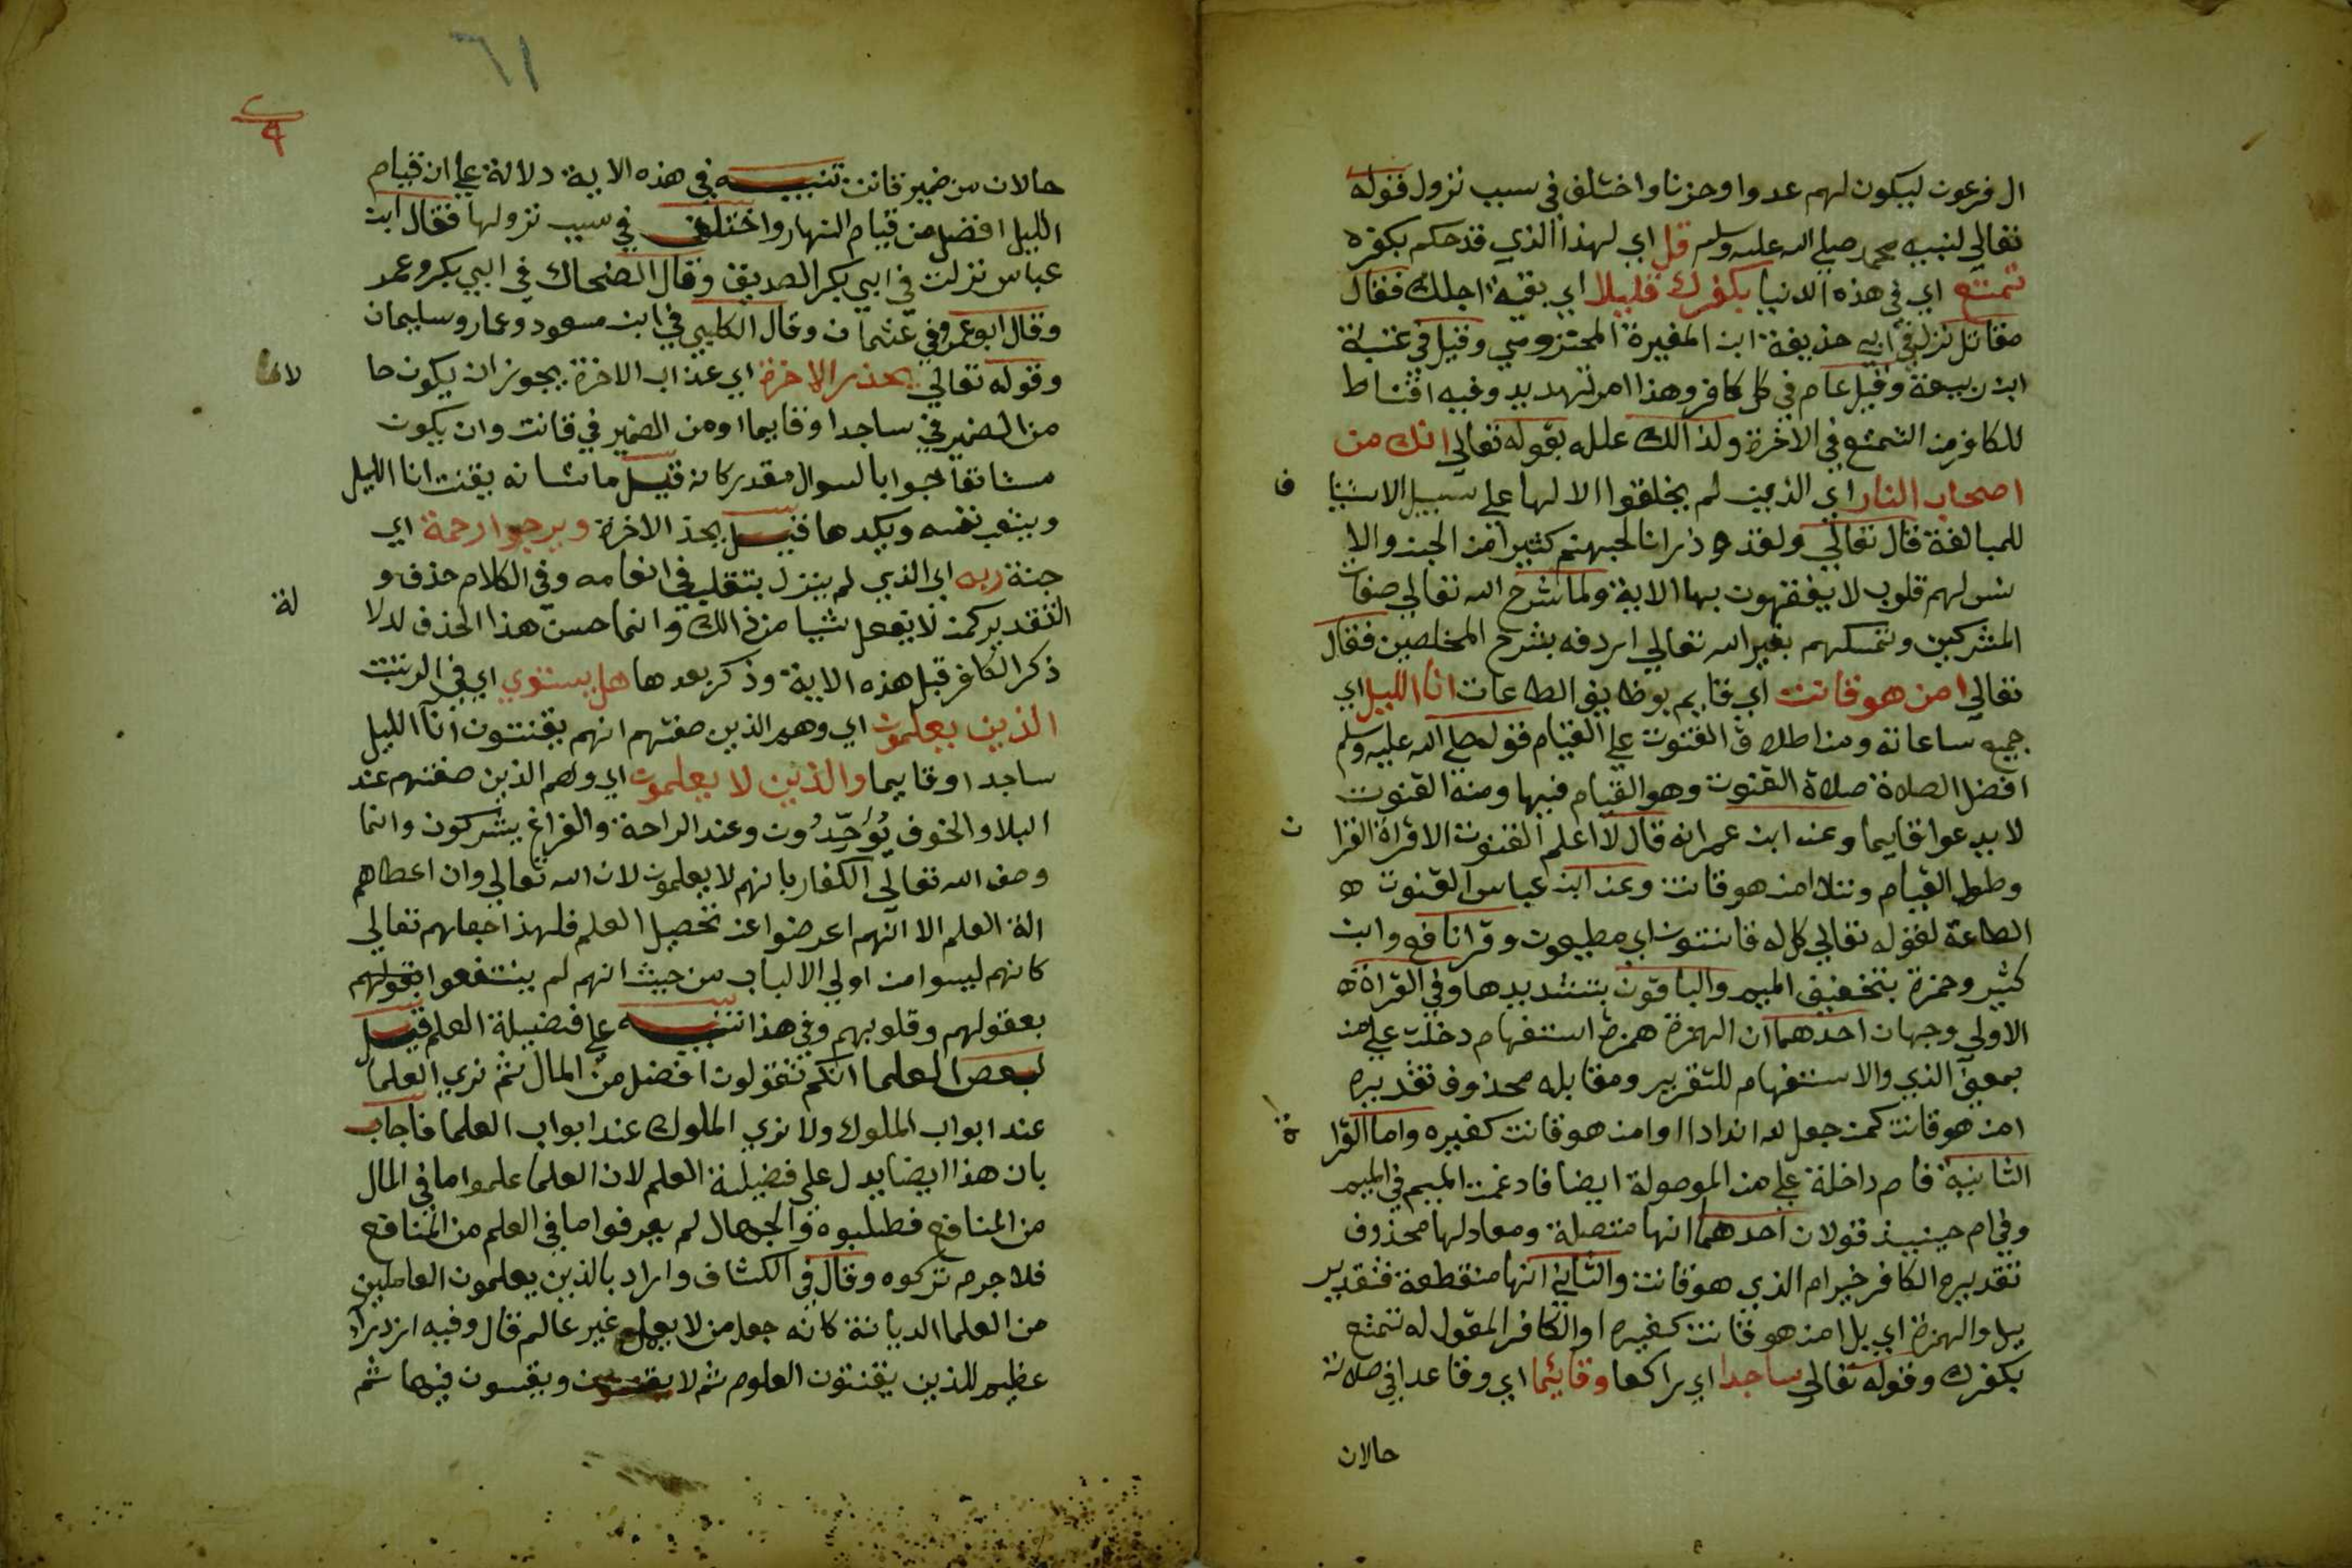 ال فرعون ليكون لهم عدوا وحزنا واختلف في سبب نزول قوله
تعالي لنبيه محمد صلي الله عليه وسلم قل اي لهذا الذي قد حكم بكفره
تمتع اي في هذه الدنيا بكفرك قليلا اي بقية اجلك فقال
مقاتل نزل في ابي حذيفة ابن المغيرة المخزومي وقيل في عتبة
ابن ربيعة وقيل عام في كل كافر وهذا امر تهديد وفيه اقناط
للكافر من التمتع في الاخرة ولذالك علله بقوله تعالي انك من
اصحاب النار اي الذين لم يخلقوا الا لها علي سبيل الاستينا ف
للمبالغة قال تعالي ولقد ذرانا لجهنم كثيرا من الجن والا
نس لهم قلوب لا يفقهون بها الاية ولما شرح الله تعالي صفات
المشركين وتمسكهم بغير الله تعالي اردفه بشرح المخلصين فقال
تعالي امن هو قانت اي قايم بوظايف الطاعات انا الليل اي
جميع ساعاته ومن اطلاق القنوت علي القيام قوله صلي الله عليه وسلم
افضل الصلاة صلاة القنوت وهو القيام فيها ومنه القنوت
لا يدعوا قايما وعن ابن عمر انه قال لا اعلم القنوت الا قراة القرا ن
وطول القيام وتلا امن هو قانت وعن ابن عباس القنوت
الطاعة لقوله تعالي كل له قانتون اي مطيعون وقرا نافع وابن
كثير وحمزة بتخفيف الميم والباقون بتشديدها وفي القراة
الاولي وجهان احدهما ان الهمزة همزة استفهام دخلت علي من
بمعني الذي والاستفهام للتقرير ومقابله محذوف تقديره
امن هو قانت كمن جعل لله اندادا او امن هو قانت كغيره واما القرا ة
الثانية فام داخلة علي من الموصولة ايضا فادغمت الميم في الميم
وفي ام حينيذ قولان احدهما انها متصلة ومعادلها محذوف
تقديره الكافر خير ام الذي هو قانت والثاني انها منقطعة فتقدير
بل والهمزة اي بل امن هو قانت كغيره او الكافر المقول له تمتع
بكفرك وقوله تعالي ساجدا اي راكعا وقائما اي وقاعدا في صلاته
حالان
٦١
حالان من ضمير قانت تنبيه في هذه الاية دلالة علي ان قيام
الليل افضل من قيام النهار واختلف في سبب نزولها فقال ابن
عباس نزلت في ابي بكر الصديق وقال الضحاك في ابي بكر وعمر
وقال ابو عمر وفي عثمان وقال الكلبي في ابن مسعود وعمار وسليمان
وقوله تعالي يحذر الاخرة اي عذاب الاخرة يجوز ان يكون حا لا
من الضمير في ساجدا وقايما او من الضمير في قانت وان يكون
مستانفا جوابا لسوال مقدر كانه قيل ما شانه يقنت انا الليل
ويتعب نفسه ويكدها قيل يحذ الاخرة ويرجوا رحمة اي
جنة ربه اي الذي لم ينزل يتقلب في انعامه وفي الكلام حذف و
التقدير كمن لا يفعل شيا من ذالك وانما حسن هذا الحذف لدلا لة
ذكر الكافر قبل هذه الاية وذكر بعدها هل يستوي اي في الرتبت
الذين يعلمون اي وهم الذين صفتهم انهم يقنتون انا الليل
ساجدا وقايما والذين لا يعلمون اي وهم الذين صفتهم عند
البلا والخوف يُوَحّدُون وعند الراحة والفراغ يشركون وانما
وصف الله تعالي الكفار بانهم لا يعلمون لان الله تعالي وان اعطاهم
الة العلم الا انهم اعرضوا عن تحصيل العلم فلهذا جعلهم تعالي
كانهم ليسوا من اولي الالباب من حيث انهم لم ينتفعوا بقولهم
بعقولهم وقلوبهم وفي هذا تنبيه علي فضيلة العلم قيل
لبعض العلما انكم تقولون افضل من المال ثم نري العلما
عند ابواب الملوك ولا نري الملوك عند ابواب العلما فاجاب
بان هذا ايضا يدل علي فضيلة العلم لان العلما علموا ما في المال
من المنافع فطلبوه والجهال لم يعرفوا ما في العلم من المنافع
فلا جرم تركوه وقال في الكشاف واراد بالذين يعلمون العاملين
من العلما الديانة كانه جعل من لا يعمل غير عالم قال وفيه ازدرا
عظيم للذين يقتنون العلوم ثم لا يقنتون ويفتنون فيها ثم